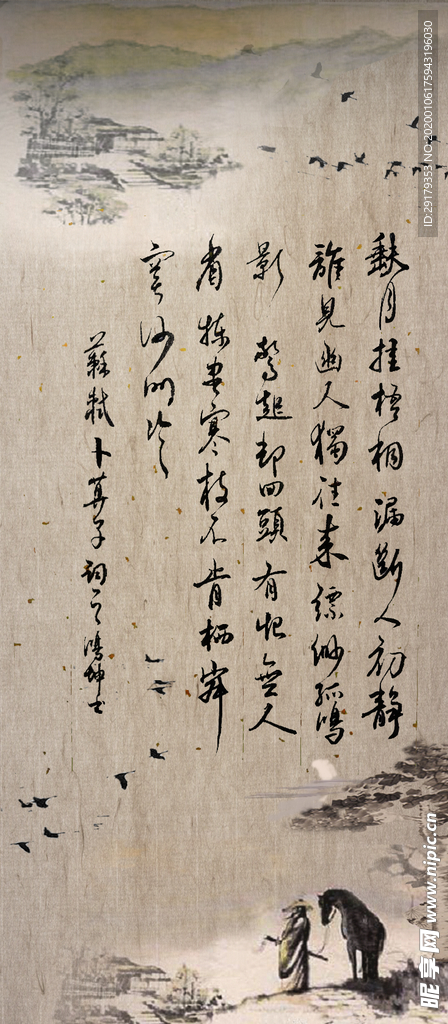 缺月挂梧桐漏斷人初静
誰見幽人獨往来縹缈孤鴻
影 驚起却回頭有恨無人
省 揀盡寒枝不肯栖寂
寞沙洲冷
蘇軾卜算子詞
ID:29179353 NO.20200106175943196030
昵享网 www.nipic.cn